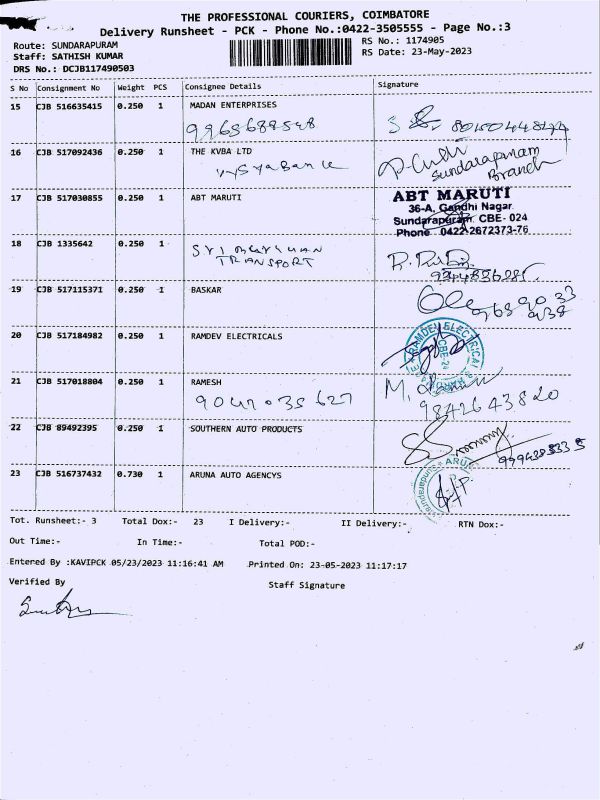 THE PROFESSIONAL COURIERS, COIMBATORE
Delivery Runsheet - PCK - Phone No.:0422-3505555 - Page No.:3
Route: SUNDARAPURAM
RS No.: 1174905
Staff: SATHISH KUMAR
RS Date: 23-May-2023
DRS No.: DCJB117490503
S No Consignment No Weight PCS Consignee Details Signature
15 CJB 516635415 0.250 1 MADAN ENTERPRISES
16 CJB 517092436 0.250 1 THE KVBA LTD
Sundarapuram
Branch
17 CJB 517030855 0.250 1 ABT MARUTI
ABT MARUTI
36-A, Gandhi Nagar
Sundarapuram, CBE- 024
Phone 0422-2672373-76
18 CJB 1335642 0.250 1
TRANSPORT
19 CJB 517115371 0.250 1 BASKAR
20 CJB 517184982 0.250 1 RAMDEV ELECTRICALS
21 CJB 517018804 0.250 1 RAMESH
9047035627
9842643820
22 CJB 89492395 0.250 1 SOUTHERN AUTO PRODUCTS
23 CJB 516737432 0.730 1 ARUNA AUTO AGENCYS
Tot. Runsheet:- 3 Total Dox:- 23 I Delivery:- II Delivery:- RTN Dox:-
Out Time:- In Time:- Total POD:-
Entered By :KAVIPCK 05/23/2023 11:16:41 AM Printed On: 23-05-2023 11:17:17
Verified By
Staff Signature